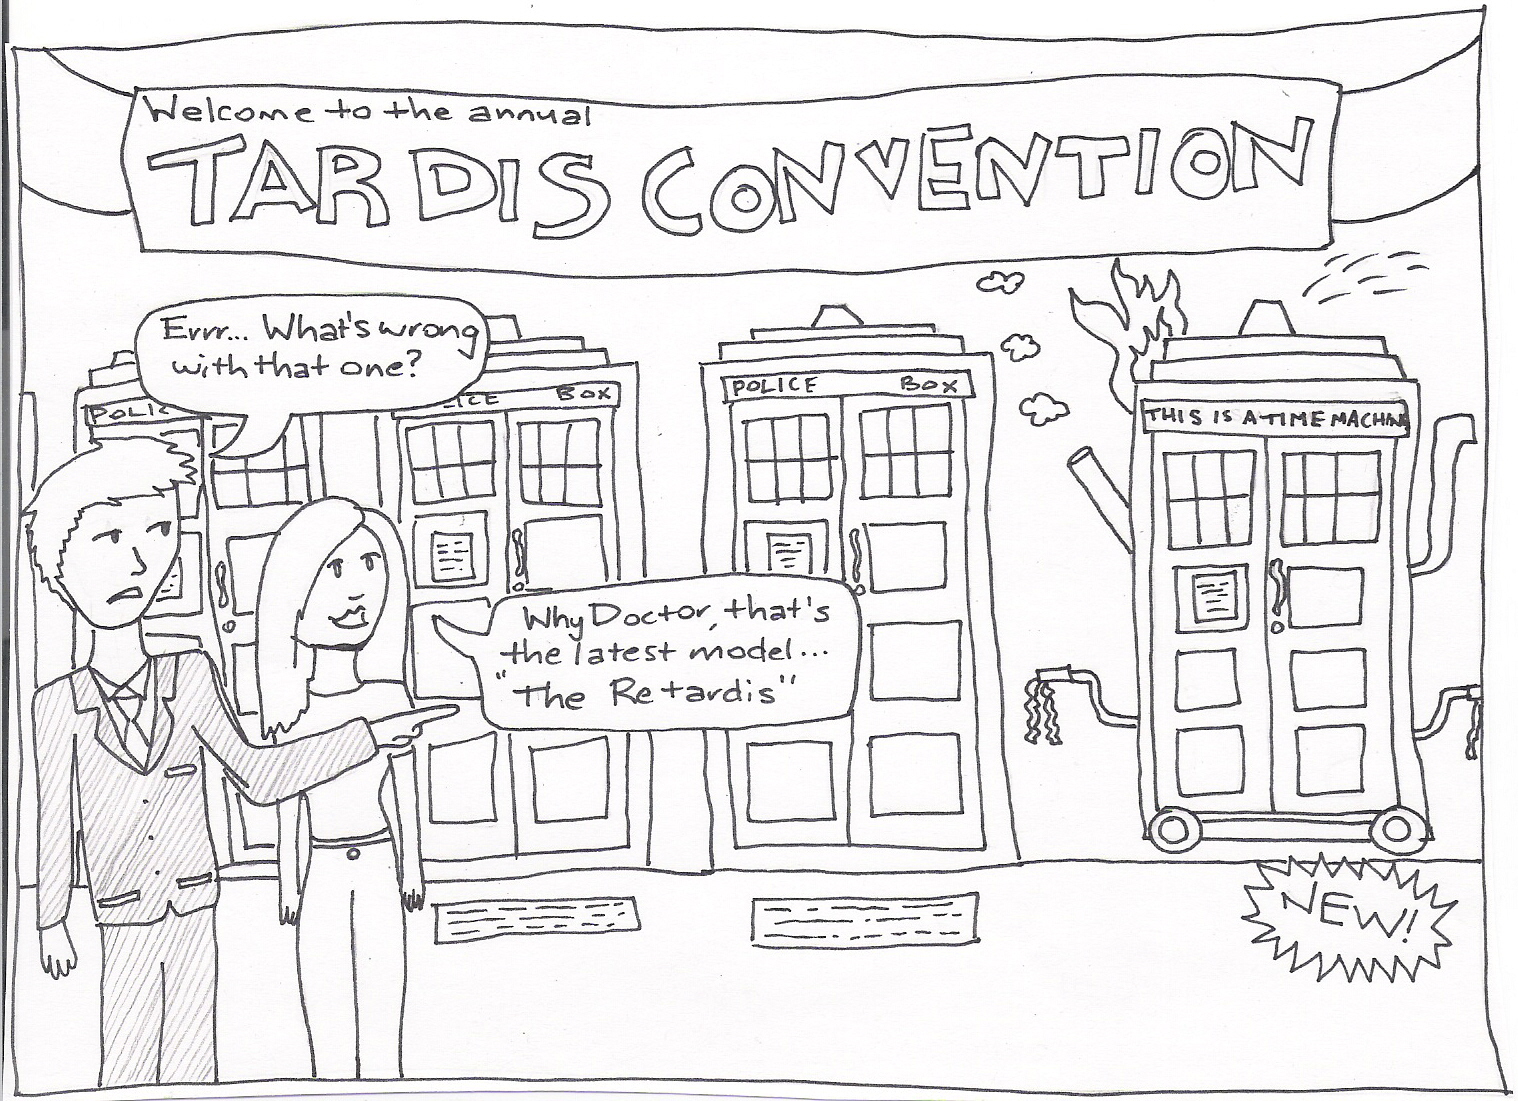 Welcome to the annual
TARDIS CONVENTION
Errr... What's wrong
with that one?
POLIC
ICE BOX
POLICE BOX
THIS IS A TIME MACHIN
Why Doctor, that's
the latest model...
"The Retardis"
NEW!